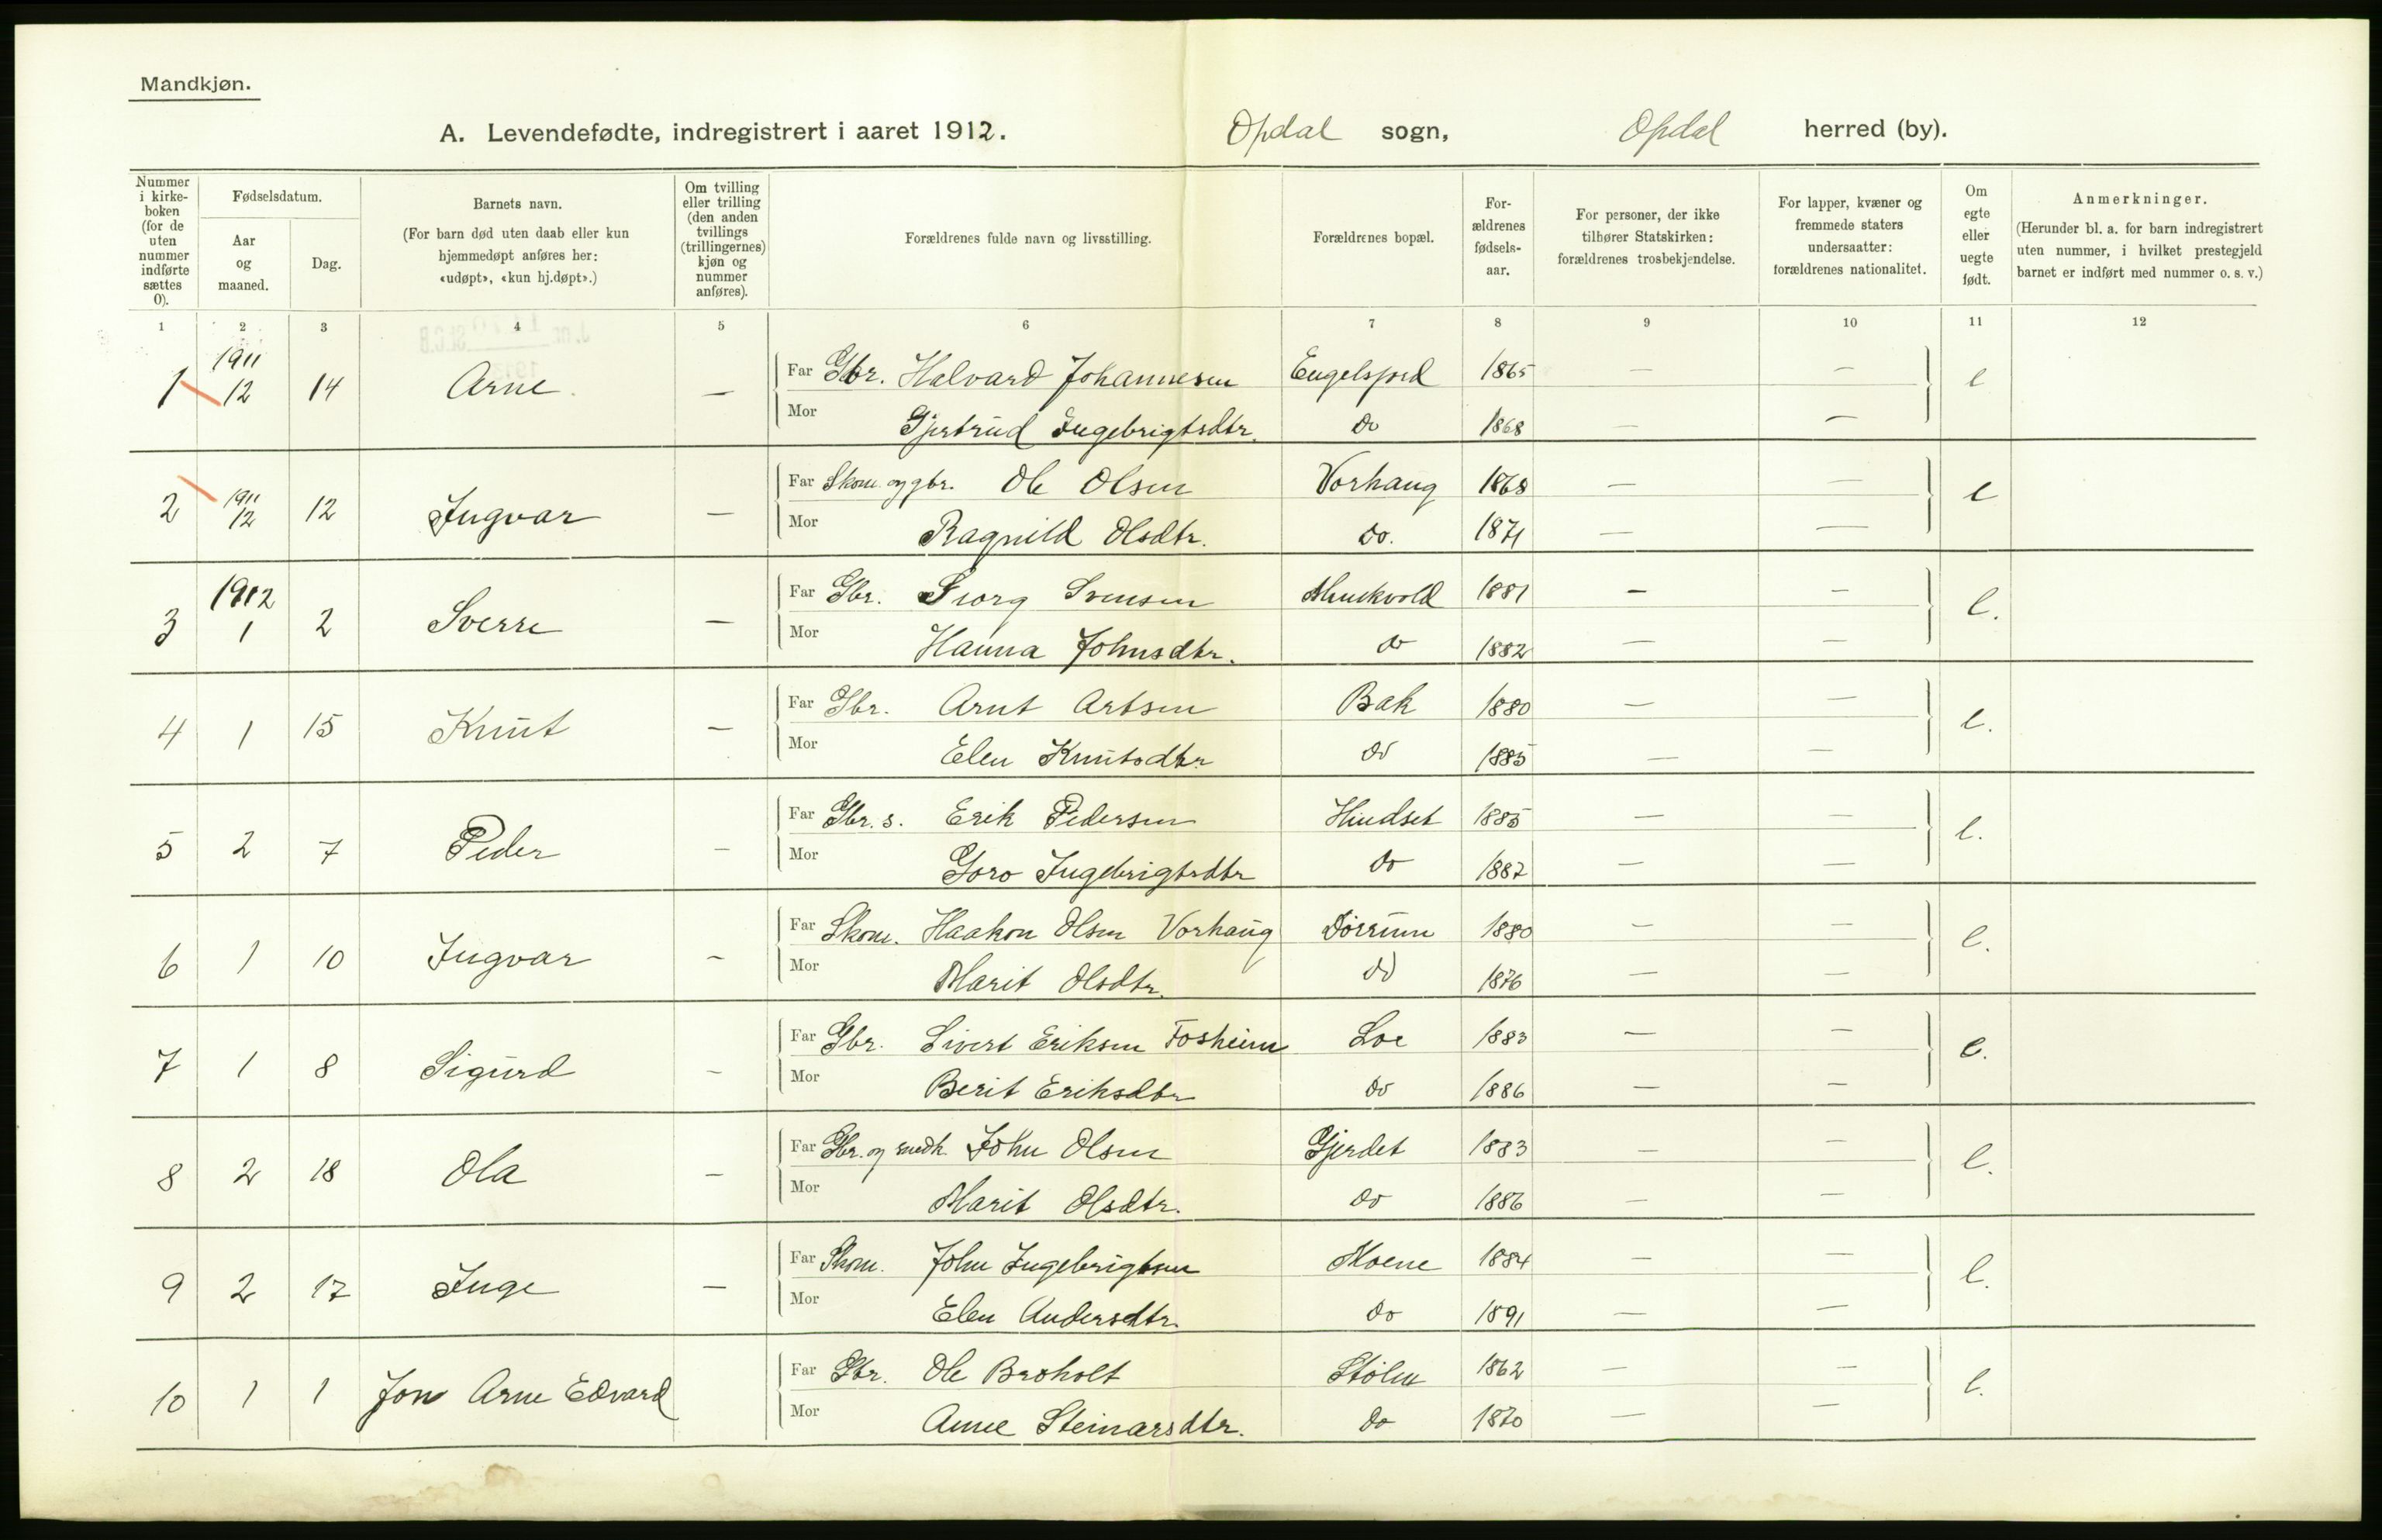 Mandkjøn.
A. Levendefødte, indregistrert i aaret 1912. Opdal sogn, Opdal herred (by).
Nummer i kirke-boken (for de uten nummer indførte sættes 0).
Fødselsdatum.
Aar og maaned.
Dag.
Barnets navn.
(For barn død uten daab eller kun hjemmedøpt anføres her: «udøpt», «kun hj.døpt».)
Om tvilling eller trilling (den anden tvillings (trillingernes) kjøn og nummer anføres).
Forældrenes fulde navn og livsstilling.
Forældrenes bopæl.
For-ældrenes fødsels-aar.
For personer, der ikke tilhører Statskirken: forældrenes trosbekjendelse.
For lapper, kvæner og fremmede staters undersaatter: forældrenes nationalitet.
Om egte eller uegte født.
Anmerkninger.
(Herunder bl. a. for barn indregistrert uten nummer, i hvilket prestegjeld barnet er indført med nummer o. s. v.)
1 2 3 4 5 6 7 8 9 10 11 12
1 1911 12 14 Arne. — Far Gbr. Halvard Johannesen Engelsjord 1865 — — e
Mor Gjertrud Ingebrigtsdtr. do 1868 — —
2 1911 12 12 Ingvar — Far Skom. og gbr. Ole Olsen Vorhaug 1868 — — e
Mor Ragnild Olsdtr. do. 1871 — —
3 1912 1 2 Sverre — Far Gbr. Georg Svensen Munkvold 1881 — — e.
Mor Hanna Johnsdtr. do 1882 — —
4 1 15 Knut — Far Gbr. Arnt Artsen Bak 1880 — — e.
Mor Elen Knutsdtr do 1885 — —
5 2 7 Peder — Far Gbr. s. Erik Pedersen Hindset 1885 — — e.
Mor Goro Ingebrigtsdtr do 1887 — —
6 1 10 Ingvar — Far Skom. Haakon Olsen Vorhaug Dørrum 1880 — — e.
Mor Marit Olsdtr. do 1876 — —
7 1 8 Sigurd — Far Gbr. Sivert Eriksen Fosheim Loe 1883 — — e.
Mor Berit Eriksdtr do 1886 — —
8 2 18 Ola — Far Gbr. og snedk. John Olsen Gjerdet 1883 — — e.
Mor Marit Olsdtr. do 1886 — —
9 2 17 Inge — Far Skom. John Ingebrigtsen Moene 1884 — — e.
Mor Elen Andersdtr. do 1891 — —
10 1 1 Jon Arne Edvard Far Gbr. Ole Broholt Stølen 1862 — — e.
Mor Anne Steinarsdtr. do 1870 — —